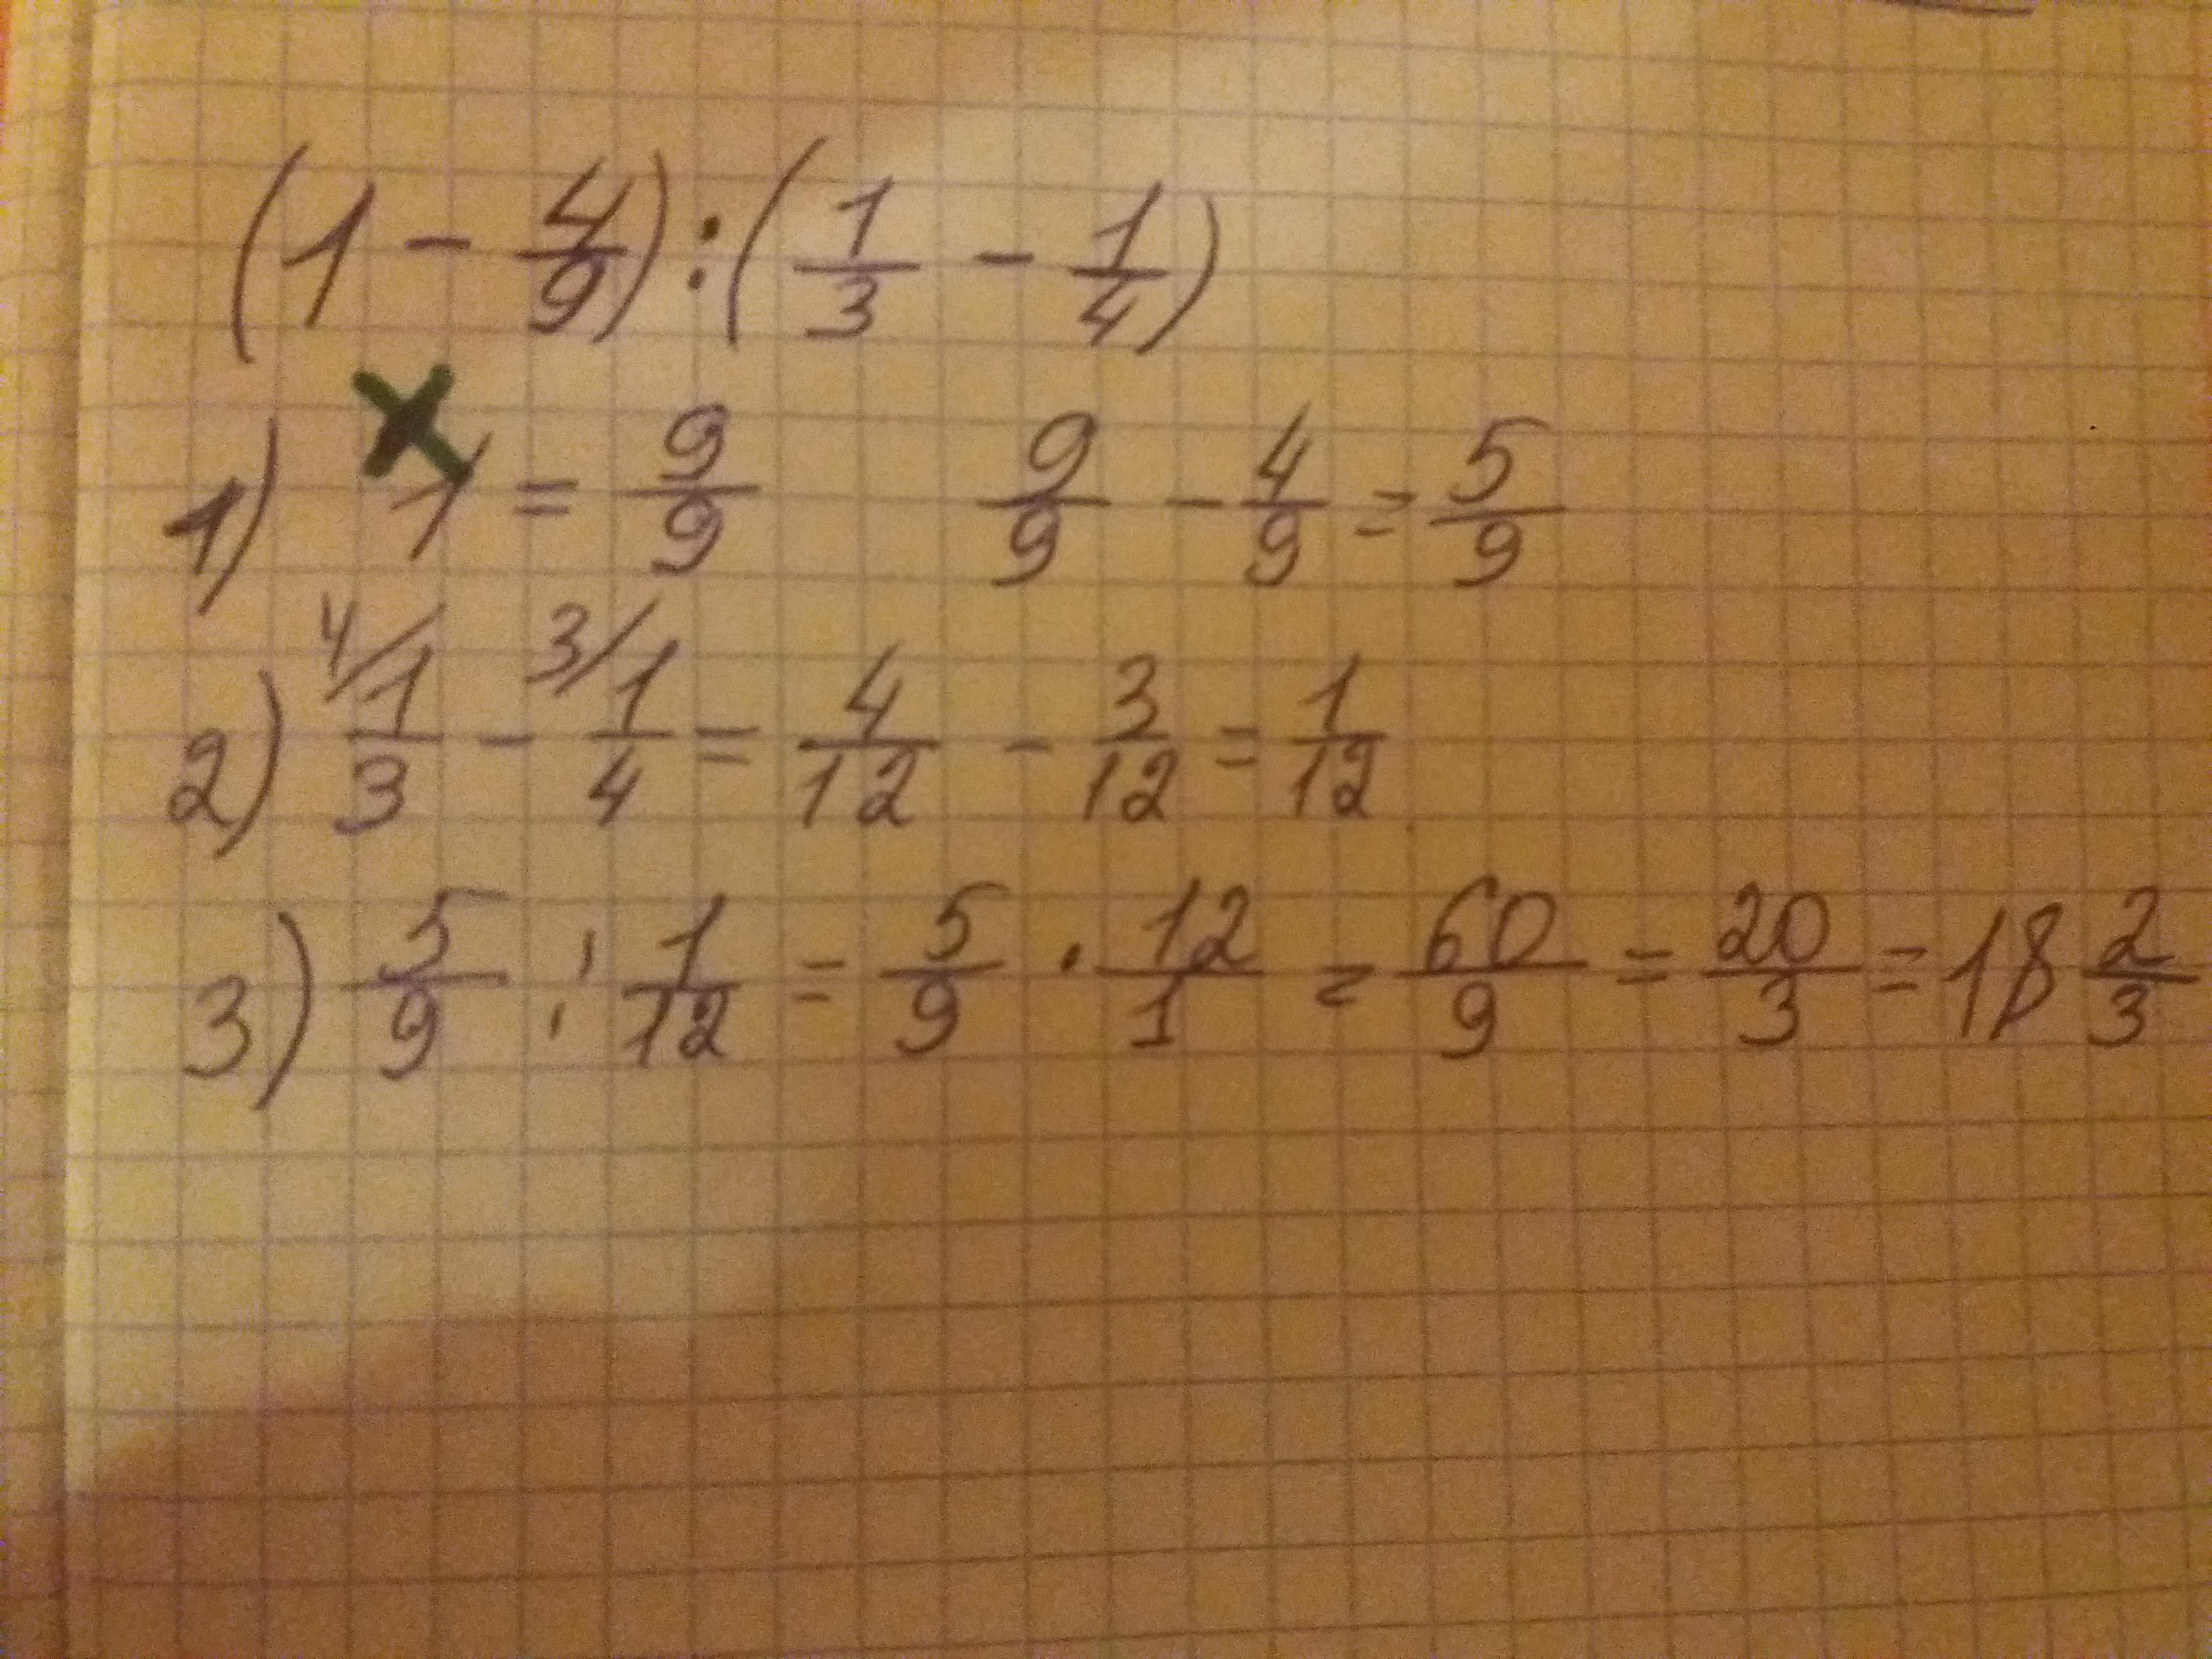 (1 - 4/9) : (1/3 - 1/4)
1) 1 = 9/9 9/9 - 4/9 = 5/9
2) 4/ 1/3 - 3/ 1/4 = 4/12 - 3/12 = 1/12
3) 5/9 : 1/12 = 5/9 · 12/1 = 60/9 = 20/3 = 18 2/3